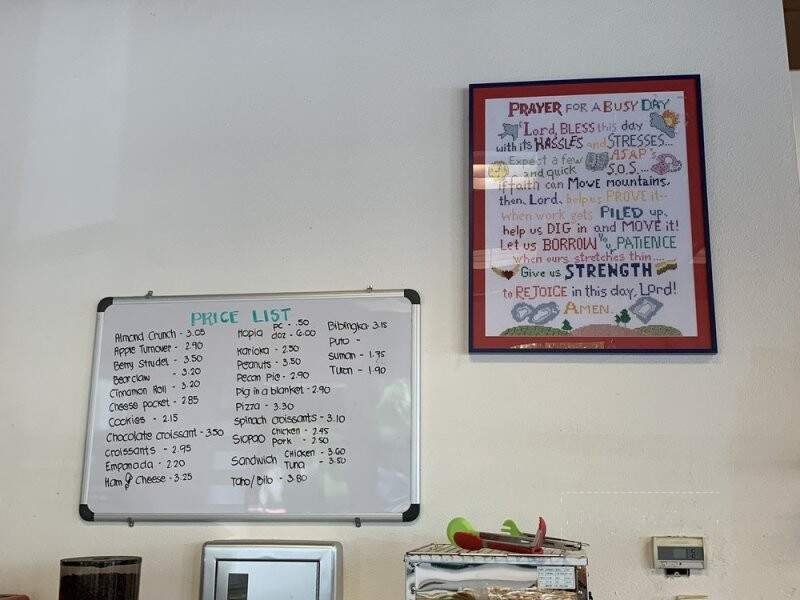 PRAYER FOR A BUSY DAY
Lord, BLESS this day
with its HASSLES and STRESSES...
Expect a few ASAP's
and quick S.O.S....
If faith can MOVE mountains,
then, Lord, help us PROVE it--
when work gets PILED up,
help us DIG in and MOVE it!
Let us BORROW your PATIENCE
when ours stretches thin....
Give us STRENGTH
to REJOICE in this day, Lord!
AMEN.
PRICE LIST
Almond Crunch - 3.05
Apple Turnover - 2.90
Berry Strudel - 3.50
Bearclaw - 3.20
Cinnamon Roll - 3.20
Cheese pocket - 2.85
Cookies - 2.15
Chocolate croissant - 3.50
Croissants - 2.95
Empanada - 2.20
Ham & Cheese - 3.25
Hopia pc - .50
doz - 6.00
Karioka - 2.50
Peanuts - 3.50
Pecan Pie - 2.90
Pig in a blanket - 2.90
Pizza - 3.30
Spinach croissants - 3.10
Siopao Chicken - 2.45
Pork - 2.50
Sandwich Chicken - 3.60
Tuna - 3.50
Taho/Bilo - 3.80
Bibingka 3.15
Puto -
Suman - 1.75
Turon - 1.90